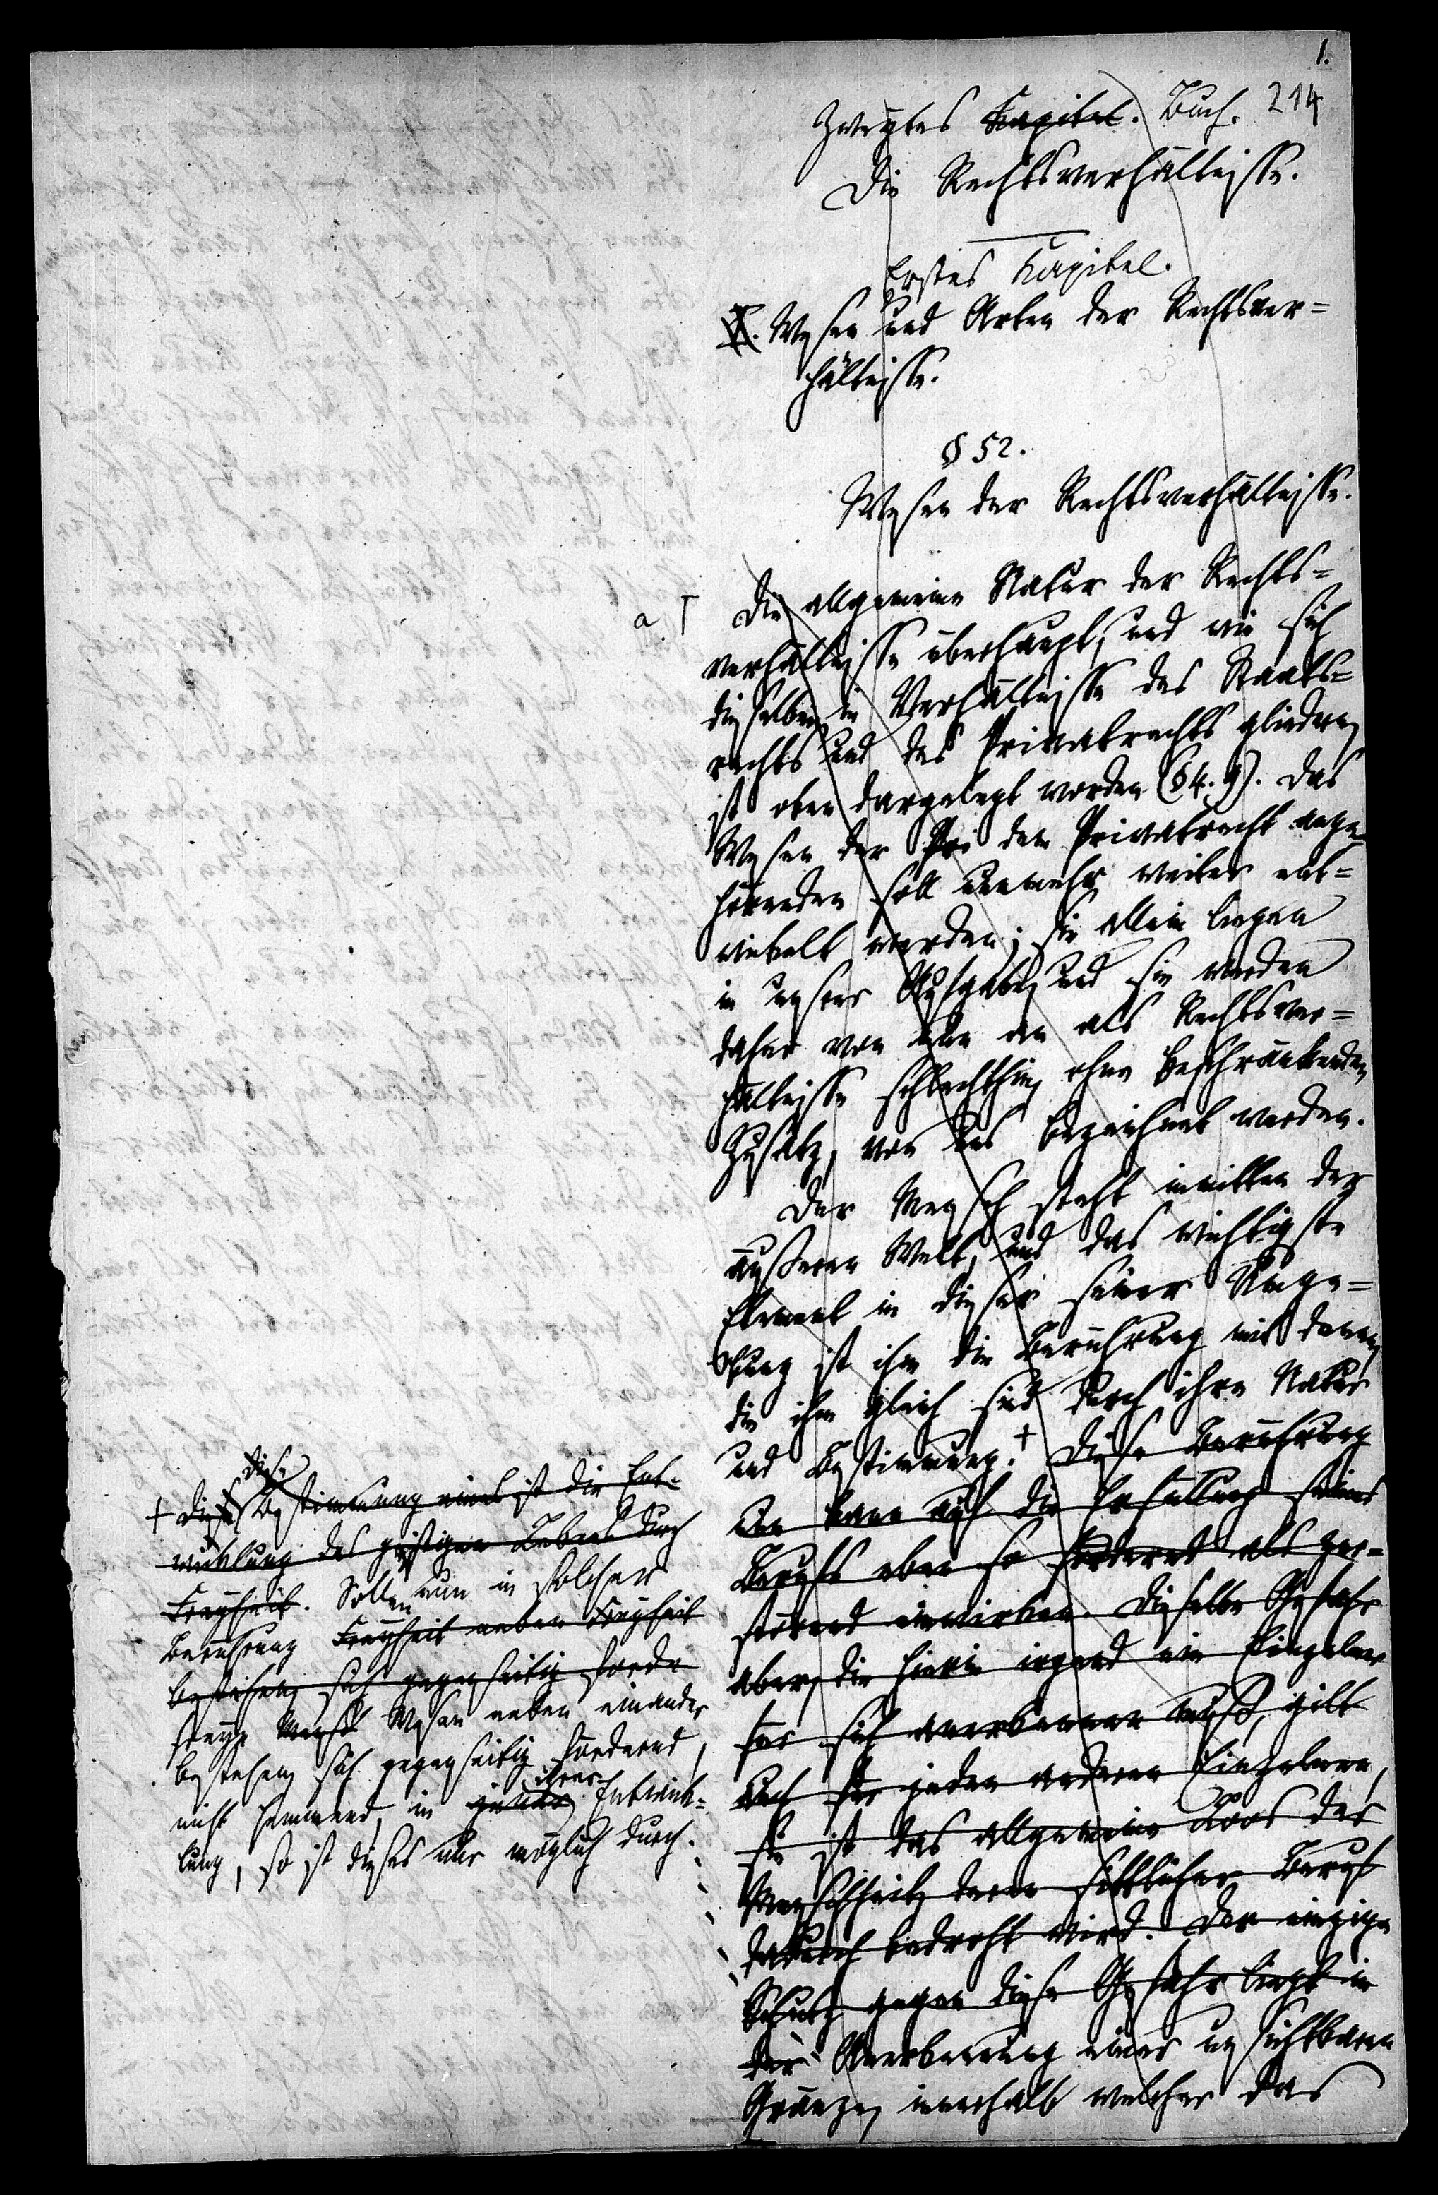 1.
214
Zweytes Kapitel. Buch.
Die Rechtsverhältnisse.
Erstes Kapitel.
I. Wesen und Arten der Rechtsver=
hältnisse.
§ 52.
Wesen der Rechtsverhältnisse.
a Die allgemeine Natur der Rechts=
verhältnisse überhaupt, und wie sich
dieselben in Verhältnisse des Staats=
rechts und des Privatrechts gliedern,
ist oben dargelegt worden (§ 4. 9). Das
Wesen der Pri dem Privatrecht ange
hörenden soll nunmehr weiter ent=
wickelt werden; sie allein liegen
in unsrer Aufgabe, und sie werden
daher von nun an als Rechtsver=
hältnisse schlechthin, ohne beschränkenden
Zusatz, von uns bezeichnet werden.
Der Mensch steht inmitten der
äußeren Welt, und das wichtigste
Element in dieser seiner Umge=
bung ist ihm die Berührung mit denen,
die ihm gleich sind durch ihre Natur
und Bestimmung. + Diese Berührung
nun kann auf die Erfüllung seines
Berufs eben so fördernd als zer=
störend einwirken. Dieselbe Gefahr
aber, die hierin irgend ein Einzelner
für sich anerkennen muß, gilt
auch für jeden anderen Einzelnen,
sie ist das allgemeine Loos der
Menschheit, deren sittlicher Beruf
dadurch bedroht wird. Der einzige
Schutz gegen diese Gefahr liegt in
der Anerkennung einer unsichtbaren
Gränze, innerhalb welcher das
+ Diese
Bestimmung ist die Ent=
wicklung des geistigen Lebens durch
Freyheit. Sollen nun in solcher
Berührung Freyheit neben Freyheit
bestehen, sich gegenseitig förde
freye Wesen neben einander
bestehen, sich gegenseitig fördernd,
nicht hemmend, in ihrer Entwick=
lung, so ist dieses nur möglich durch